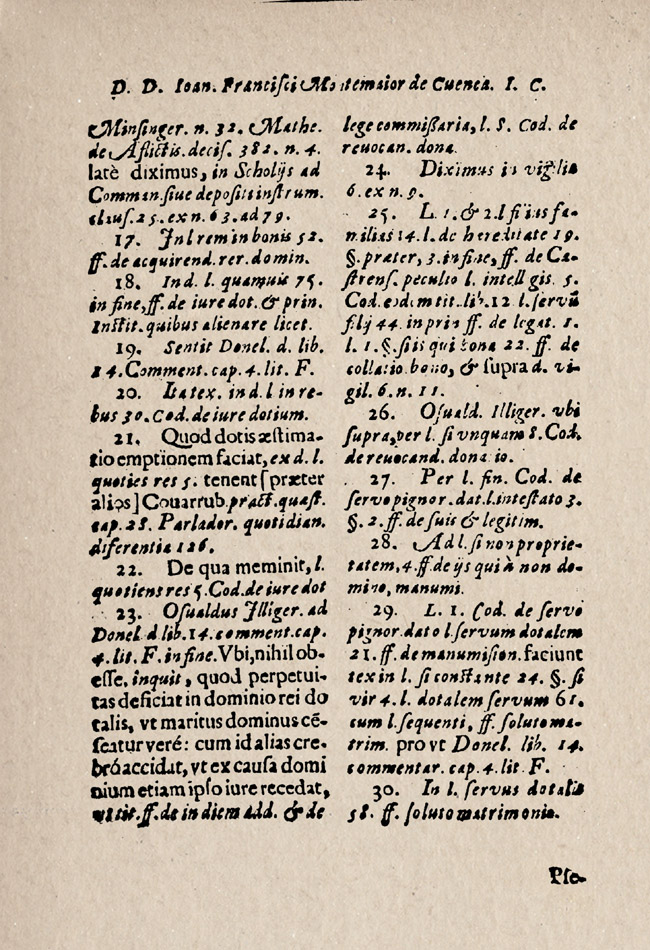 D. D. Ioan. Franciſci Mo temaior de Cuenca. I. C.
Minſinger. n. 32. Mathe.
de Afliƈtis. deciſ. 382. n. 4.
latè diximus, in Scholijs ad
Comman. ſiue depoſiti inſtrum.
clauſ. 25. ex n. 63. ad 79.
17. In l rem in bonis 52.
ff. de acquirend. rer. domin.
18. In d. l. quamuis 75.
in fine, ff. de iure dot. & prin.
Inſtit. quibus alienare licet.
19. Sentit Donel. d. lib.
14. Comment. cap. 4. lit. F.
20. Ita tex. in d. l in re-
bus 30. Cod. de iure dotium.
21. Quod dotis æſtima-
tio emptionem faciat, ex d. l.
quoties res 5. tenent [præter
alios] Couarrub. praƈt. quæſt.
cap. 28. Parlador. quotidian.
diferentia 126.
22. De qua meminit, l.
quotiens res 5. Cod. de iure dot
23. Oſualdus Illiger. ad
Donel. d lib. 14. comment. cap.
4. lit. F. in fine. Vbi, nihil ob-
eſſe, inquit, quod perpetui-
tas deficiat in dominio rei do
talis, vt maritus dominus cē-
ſeatur veré: cum id alias cre-
bró accidat, vt ex cauſa domi
nium etiam ipſo iure recedat,
ff. de in diem add. & de
lege commiſſaria, l. 8. Cod. de
reuocan. dona.
24. Diximus in vigilia
6. ex n. 9.
25. L. 1. & 2. l ſi iis fa-
milias 14. l. de hereditate 19.
§. prater, 3. in fine, ff. de Ca-
ſtrenſ. peculio l. intell gis. 5.
Cod. eodem tit. lib. 12 l. ſervū
filij 44. in prin ff. de legat. 1.
l. 1. §. ſi is qui bona 22. ff. de
collatio. bono, & ſupra d. vi-
gil. 6. n. 11.
26. Oſuald. Illiger. vbi
ſupra, per l. ſi vnquam 8. Cod.
de reuocand. dona io.
27. Per l. fin. Cod. de
ſervo pignor. dat. l. inteſtato 3.
§. 2. ff. de ſuis & legitim.
28. Ad l. ſi non proprie-
tatem, 4. ff. de ijs qui à non do-
mino, manumi.
29. L. 1. Cod. de ſervo
pignor. dat o l. ſervum dotalem
21. ff. de manumiſion. faciunt
tex in l. ſi conſtante 24. §. ſi
vir 4. l. dotalem ſervum 61.
cum l. ſequenti, ff. ſoluto ma-
trim. pro vt Donel. lib. 14.
commentar. cap. 4. lit. F.
30. In l. ſervus dotalis
58. ff. ſoluto matrimonio.
Pſe-